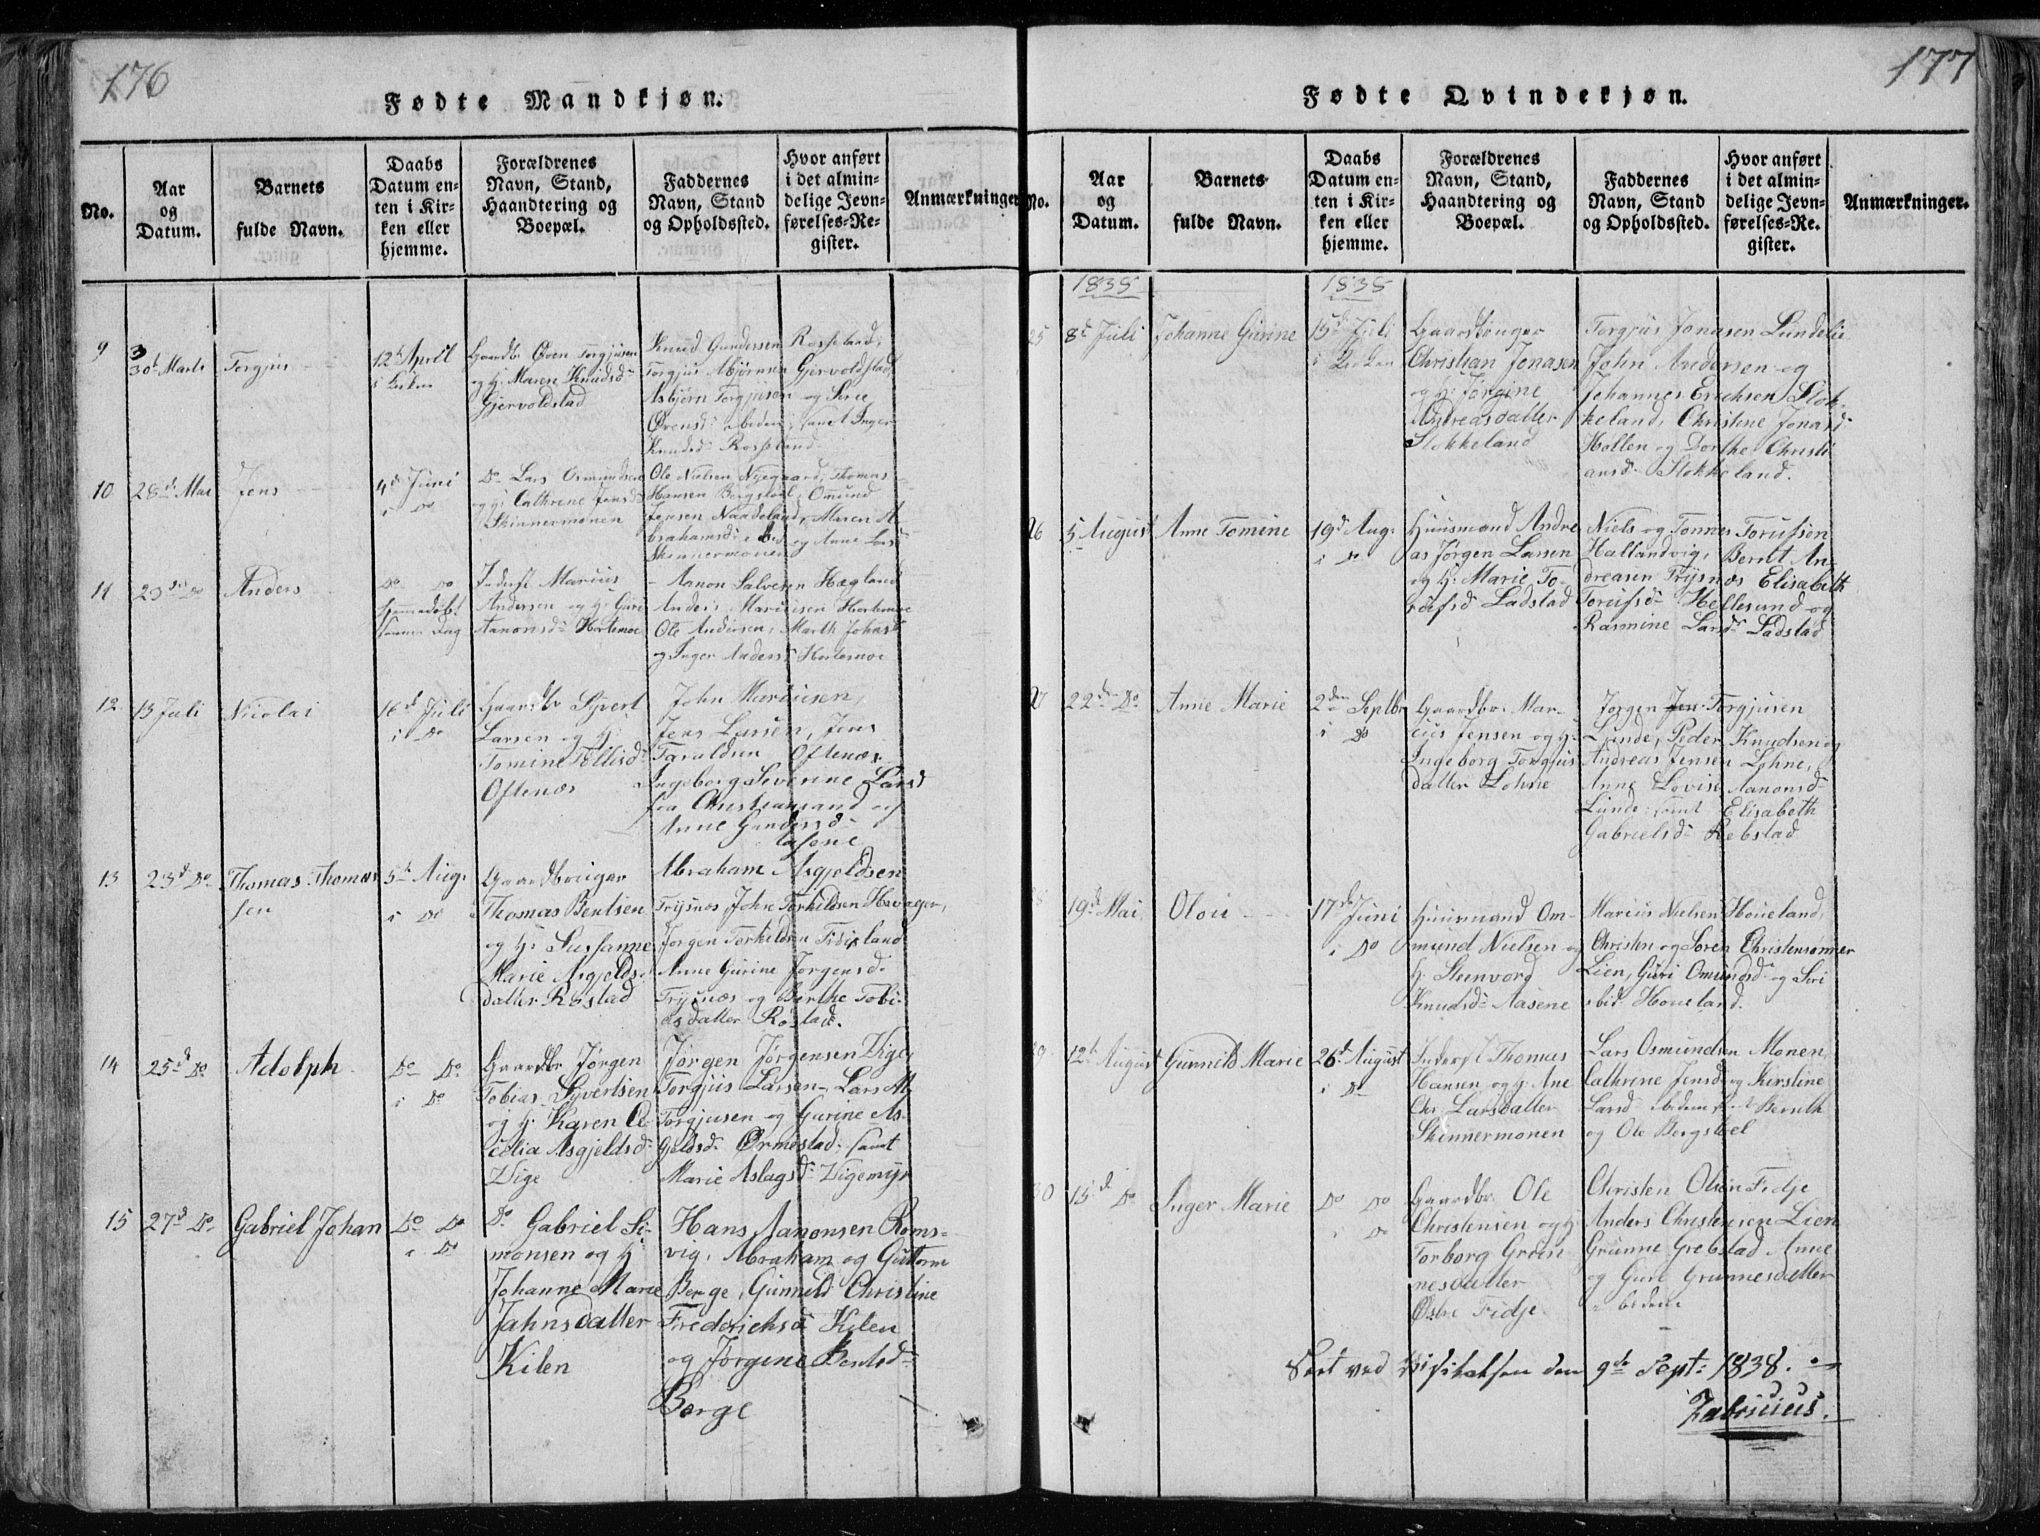 176
Fødte Mandkjøn.
No.
Aar
og
Datum.
Barnets
fulde Navn.
Daabs
Datum en-
ten i Kir-
ken eller
hjemme.
Forældrenes
Navn, Stand,
Haandtering og
Boepæl.
Faddernes
Navn, Stand
og Opholdssted.
Hvor anført
i det almin-
delige Jevn-
førelses-Re-
gister.
Anmærkninger
9
30d Marts
Torgjus
12te April
i Kirken
Gaardbr Øven Torgjusen
og H: Maren Knudsd:
Gjervoldstad
Knud Gundersen Rosseland,
Torgjus Asbjørnsen Gjervoldstad
Asbjørn Torgjusen og Sirie
Øvensd: ibidem, samt Inger
Knudsd: Rosseland
10
28d Mai
Jens
4d Juni
i Do
Do Lars Osmundsen
og H: Cathrine Jensd:
Skinnermonen
Ole Nielsen Nyegaard, Thomas
Hansen Bergstøel, Omund
Jensen Naadeland, Maren A-
brahamsd: i Do og Anne Larsd:
Skinnermonen
11
23de Do
Anders
Do Do
hjemmedøbt
samme Dag
Inderst Marius
Andersen og H: Guri
Aanonsd: Hortemoe
Aanon Salvesen Hægland
Anders Mariusen Hortemoe
Ole Andersen, Marth Johnsd:
og Inger Andersd: Hortemoe
12
13 Juli
Nicolai
16d Juli
i Do
Gaardbr Syvert
Larsen og H:
Tomine Tollisd:
Oftenæs
John Mariusen,
Jens Larsen, Jens
Taraldsen Oftenæs,
Ingeborg Severine Larsd
fra Christiansand og
Anne Gundersd:
Aasene
13
23d Do
Thomas Thomas
sen
5te Aug:
i Do
Gaardbruger
Thomas Bentsen
og H: Susanne
Marie Asgjelds-
datter Røstad
Abraham Asgjeldsen
Trysnæs John Torkildsen Havager,
Jørgen Torkildsen Fidjeland
Anne Gurine Jørgensd:
Trysnæs og Birthe Tobi-
asdatter Røstad.
14
25d Do
Adolph
Do Do
i Do
Gaardbr Jørgen
Tobias Syvertsen
og H: Karen Ce-
cilia Asgjeldsd:
Vige
Jørgen Jørgensen Vige,
Torgjus Larsen, Lars M.
Torgjusen og Gurine As-
gjeldsd: Ørmestad, samt
Marie Aslagsd: Vigemyr
15
27d Do
Gabriel Johan
Do Do
i Do
Do Gabriel Si-
monsen og H:
Johanne Marie
Jahnsdatter
Kilen
Hans Aanonsen Roms-
vig, Abraham og Guttorm
Berge, Gunneld Christine
Frederichsd Kilen
og Jørgine Bentsd:
Berge
177
Fødte Qvindekjøn.
No.
Aar
og
Datum.
Barnets
fulde Navn.
Daabs
Datum en-
ten i Kir-
ken eller
hjemme.
Forældrenes
Navn, Stand,
Haandtering og
Boepæl.
Faddernes
Navn, Stand
og Opholdssted.
Hvor anført
i det almin-
delige Jevn-
førelses-Re.
gister.
Anmærkninger.
1838
1838
25
8d Juli
Johanne Gurine
15d Juli
i Kirken
Gaardbruger
Christian Jonasen
og H: Jørgine
Andreasdatter
Stokkeland
Torgjus Jonasen Lundelie
John Andersen og
Johannes Erichsen Stok-
keland, Christine Jonasd:
Hollen og Dorthe Christi
ansd: Stokkeland.
26
5 August
Anne Tomine
19d Aug:
i Do
Huusmand Andre
as Jørgen Larsen
og H: Marie To-
rufsd Ladstad
Niels og Tønnes Torufsen
Hallandvig, Bernt An-
dreasen Trysnæs Elisabeth
Torufsd: Hellesund og
Rasmine Larsd: Ladstad
27
22de Do
Anne Marie
2den Septbr
i Do
Gaardbr. Mar-
cus Jensen og H:
Ingeborg Torgjus
datter Lohne
Jørgen Torgjusen
Lunde, Peder Knudsen og
Andreas Jensen Lohne,
Anne Lovise Aanonsd:
Lunde, samt Elisabeth
Gabrielsd: Rebstad
28
19d Mai
Olou
17de Juni
i Do
Huusmand Om-
mund Nielsen og
H: Steenvord
Knudsd: Aasene
Marius Nielsen Houeland,
Christen og Søren Christensønner
Lien, Guri Omundsd: og Siri
ibid. Houeland.
29
12te August
Gunnild Marie
26d August
i Do
Inderst Thomas
Hansen og H: Ane
Chr: Larsdatter
Skinnermonen
Lars Osmundsen Monen,
Cathrine Jensd: og Kirstine
Larsd ibidem, samt Bernth
og Ole Bergstøel
30
15d Do
Inger Marie
Do Do
i Do
Gaardbr. Ole
Christensen og H:
Torborg Grun-
nesdatter
Østre Fidje
Christen Olsen Fidje
Anders Christensen Lien
Grunne Grebstad Anne
og Guri Grunnesdatter
ibidem
Seet ved Visitatsen den 9de Sept: 1838.
Fabricius.